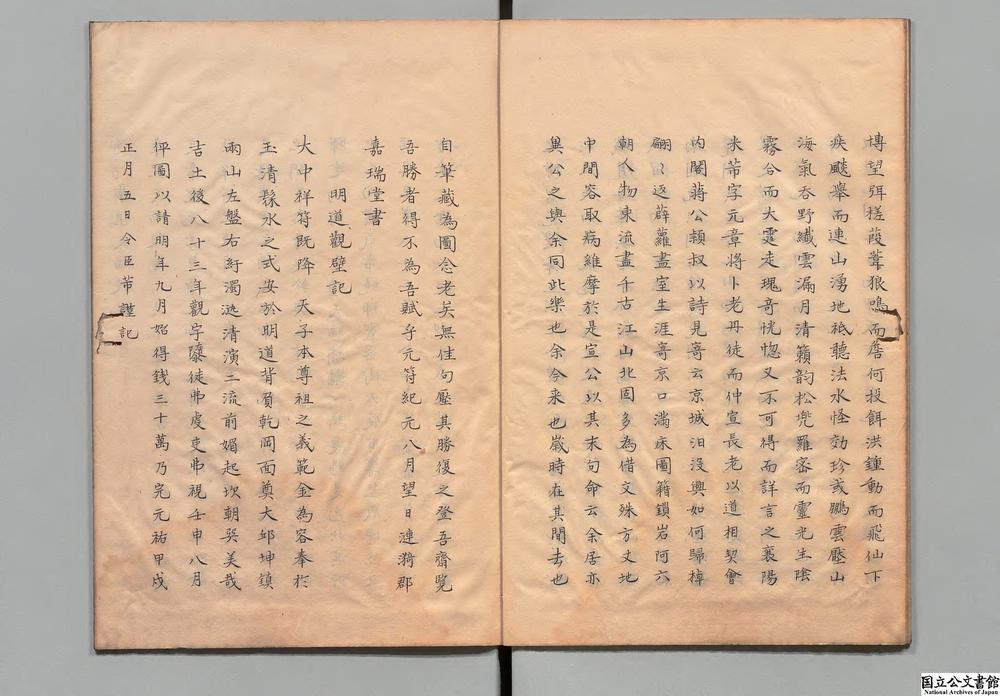 槫望弭槎葭葦狼鳴而詹何投餌洪鍾動而飛仙下
疾颷舉而連山湧地祇聽法水怪効珍或鵬雲壓山
海氣呑野纖雲漏月清籟韵松兠羅密而靈光生陰
霧合而大霆走瑰奇恍惚又不可得而詳言之襄陽
米芾字元章將卜老丹徒而仲宣長老以道相契會
内閣蔣公頴叔以詩見寄云京城汩没興如何歸棹
翩〻返薜蘿盡室生涯寄京口滿床圖籍鎖岩阿六
朝人物東流盡千古江山北固多為借文殊方丈地
中間容取病維摩於是宣公以其末句命云余居亦
異公之與余同此樂也余今来也嵗時在其間去也
自筆藏為圖念老矣無佳句壓其勝復之登吾齋覽
吾勝者得不為吾賦乎元符紀元八月望日連漪郡
嘉瑞堂書
明道觀壁記
大中祥符既降天子本尊祖之義範金為容奉於
玉清緐水之式安於明道背負乾岡面奠大邱坤鎮
兩山左盤右紆濁泌清演二流前媚起坎朝巽美哉
吉土後八十三年觀宇隳徒弗虔吏弗視壬申八月
伻圖以請明年九月始得錢三十萬乃完元祐甲戍
正月五日令臣芾謹記
国立公文書館
National Archives of Japan